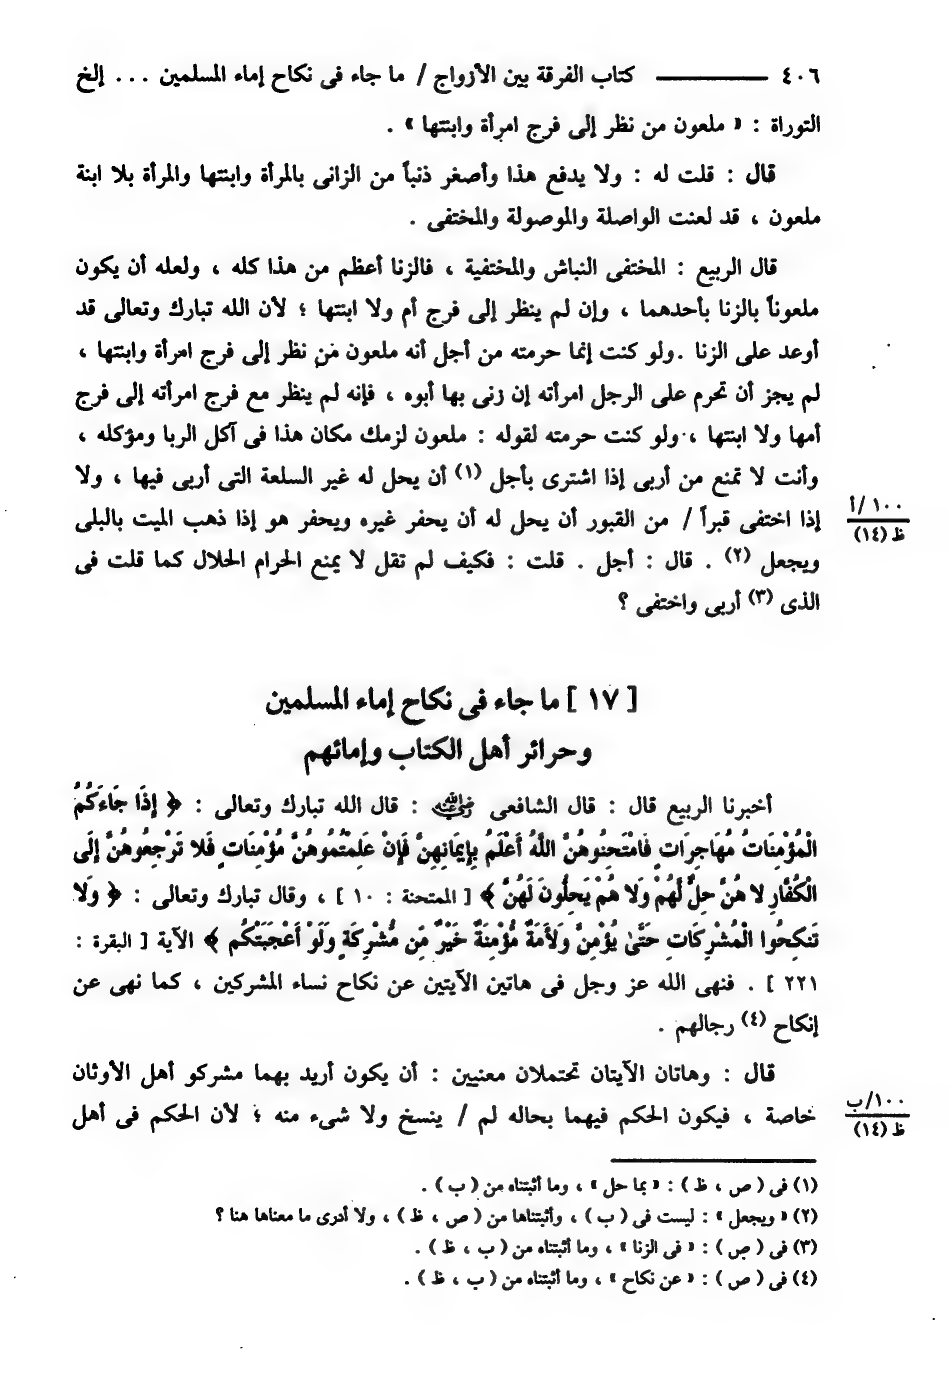 ٤٠٦ ــــــــ كتاب الفرقة بين الأزواج / ما جاء فى نكاح إماء المسلمين ... إلخ
التوراة : « ملعون من نظر إلى فرج امرأة وابنتها » .
قال : قلت له : ولا يدفع هذا وأصغر ذنباً من الزانى بالمرأة وابنتها والمرأة بلا ابنة
ملعون ، قد لعنت الواصلة والموصولة والمختفى .
قال الربيع : المختفى النباش والمختفية ، فالزنا أعظم من هذا كله ، ولعله أن يكون
ملعوناً بالزنا بأحدهما ، وإن لم ينظر إلى فرج أم ولا ابنتها ؛ لأن الله تبارك وتعالى قد
أوعد على الزنا .ولو كنت إنما حرمته من أجل أنه ملعون مَن نظر إلى فرج امرأة وابنتها ،
لم يجز أن تحرم على الرجل امرأته إن زنى بها أبوه ، فإنه لم ينظر مع فرج امرأته إلى فرج
أمها ولا ابنتها ، ولو كنت حرمته لقوله : ملعون لزمك مكان هذا فى آكل الربا ومؤكله ،
وأنت لا تمنع من أربى إذا اشترى بأجل (١) أن يحل له غير السلعة التى أربى فيها ، ولا
إذا اختفى قبراً / من القبور أن يحل له أن يحفر غيره ويحفر هو إذا ذهب الميت بالبلى
١٠٠ /أ
ظ (١٤)
ويجعل (٢) . قال : أجل . قلت : فكيف لم تقل لا يمنع الحرام الحلال كما قلت فى
الذى (٣) أربى واختفى ؟
[ ١٧ ] ما جاء فى نكاح إماء المسلمين
وحرائر أهل الكتاب وإمائهم
أخبرنا الربيع قال : قال الشافعى رضي الله عنه : قال الله تبارك وتعالى : ﴿ إِذَا جَاءَكُمُ
الْمُؤْمِنَاتُ مُهَاجِرَاتٍ فَامْتَحِنُوهُنَّ اللَّهُ أَعْلَمُ بِإِيمَانِهِنَّ فَإِنْ عَلِمْتُمُوهُنَّ مُؤْمِنَاتٍ فَلا تَرْجِعُوهُنَّ إِلَى
الْكُفَّارِ لا هُنَّ حِلٌّ لَّهُمْ وَلا هُمْ يَحِلُّونَ لَهُنَّ ﴾ [ الممتحنة : ١٠ ] ، وقال تبارك وتعالى : ﴿ وَلا
تَنكِحُوا الْمُشْرِكَاتِ حَتَّىٰ يُؤْمِنَّ وَلأَمَةٌ مُّؤْمِنَةٌ خَيْرٌ مِّن مُّشْرِكَةٍ وَلَوْ أَعْجَبَتْكُم ﴾ الآية [ البقرة :
٢٢١ ] . فنهى الله عز وجل فى هاتين الآيتين عن نكاح نساء المشركين ، كما نهى عن
إنكاح (٤) رجالهم .
قال : وهاتان الآيتان تحتملان معنيين : أن يكون أريد بهما مشركو أهل الأوثان
خاصة ، فيكون الحكم فيهما بحاله لم / ينسخ ولا شىء منه ؛ لأن الحكم فى أهل
١٠٠/ب
ظ (١٤)
(١) فى ( ص ، ظ ) : « بما حل » ، وما أثبتناه من ( ب ) .
(٢) « ويجعل » : ليست فى ( ب ) ، وأثبتناها من ( ص ، ظ ) ، ولا أدرى ما معناها هنا ؟
(٣) فى ( ص ) : « فى الزنا » ، وما أثبتناه من ( ب ، ظ ) .
(٤) فى ( ص ) : « عن نكاح » ، وما أثبتناه من ( ب ، ظ ) .